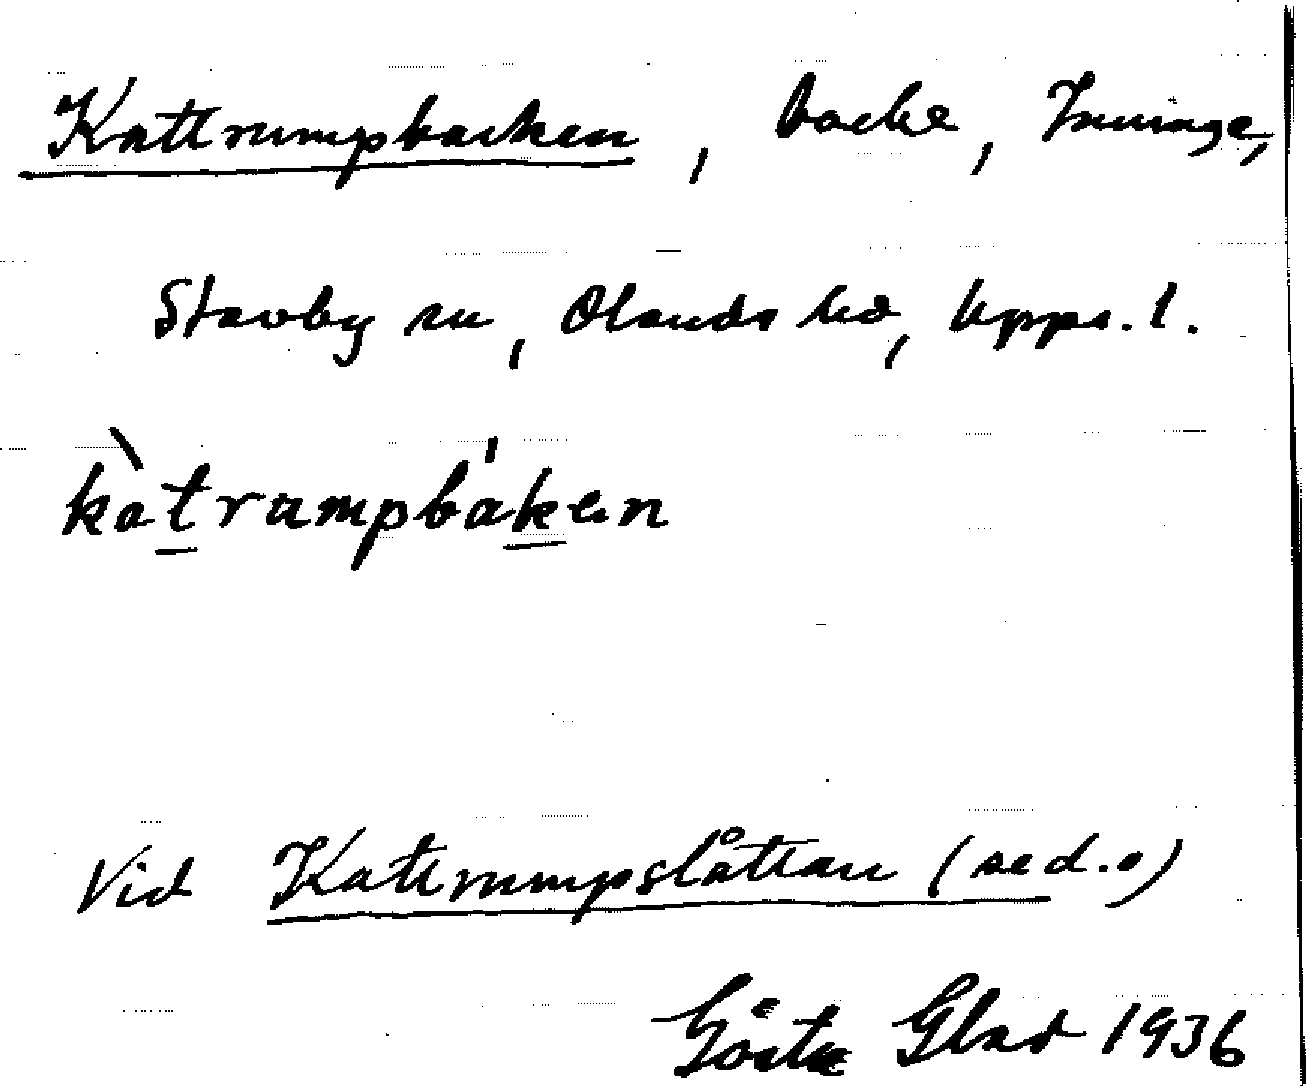 Kattrumpbacken, backe, Inninge,
Stavby sn, Olands hd, Upps. l.
kàtrumpbáken
Vid Kattrumpslåttan (se d. o)
Gösta Glad 1936